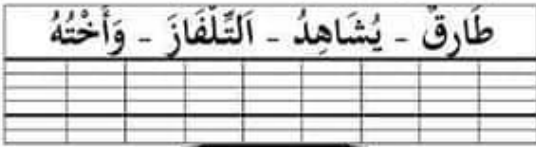 طَارِقٌ - يُشَاهِدُ - اَلتِّلْفَازَ - وَأُخْتُهُ